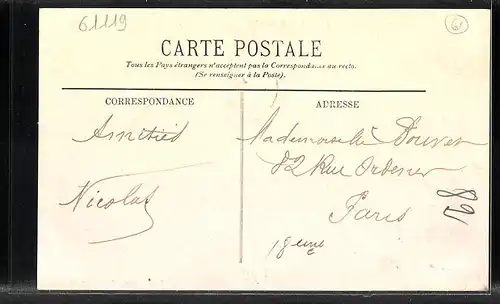 61119
61
CARTE POSTALE
Tous les Pays étrangers n'acceptent pas la Correspondance au recto.
(Se renseigner à la Poste).
CORRESPONDANCE
ADRESSE
Amitiés
Nicolas
Mademoiselle
82 Rue Ordener
Paris
18eme